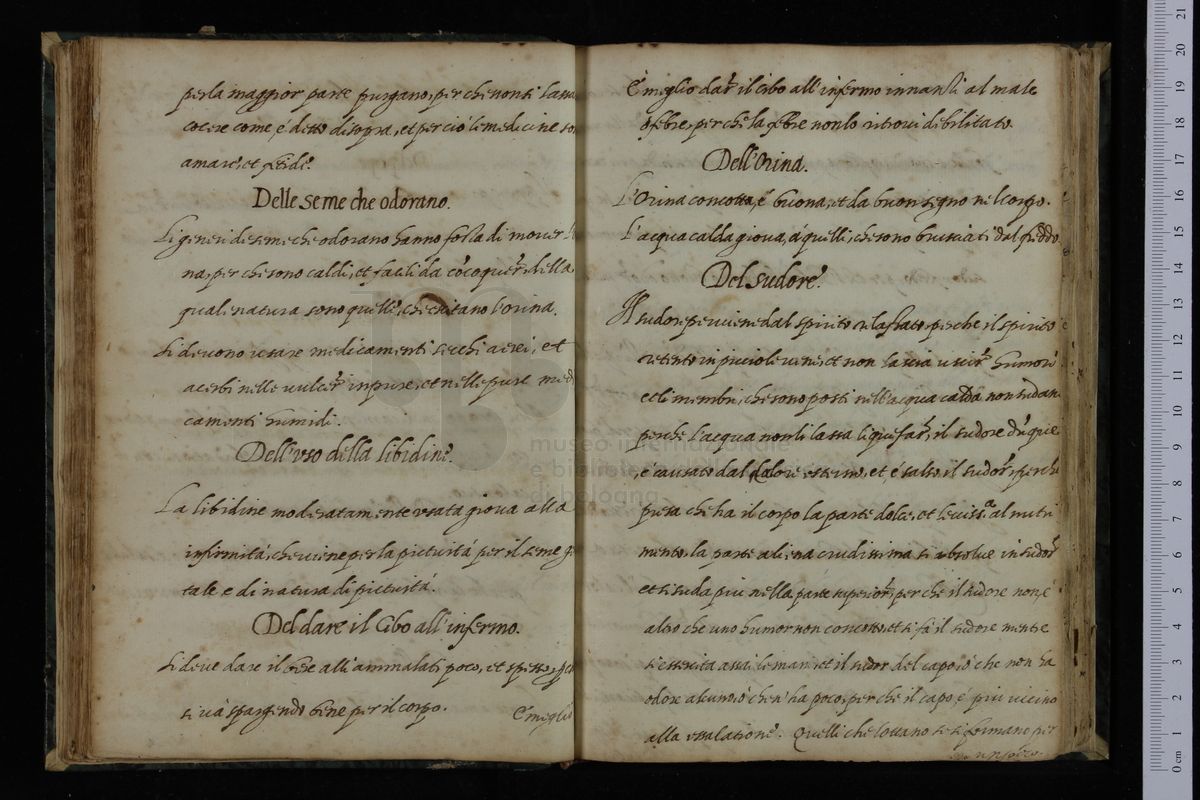 per la maggior parte purgano, perche non si lassa
cocere come é detto di sopra, et perció le medicine so
amare, et fetide.
Delle seme che odorano.
Li generi de seme che odorano hanno forsa di mover l'o
na, per che sono caldi, et facili da cōcoquer, della
qual natura sono quelle, che citano l'orina.
Si devono usare medicamenti secchi acri, et
acerbi nelle vulcer inpure, et nelle pure medi
camenti humidi.
Dell'uso della libidine.
La libidine moderatamente usata giova alla
infirmitá, che viene per la pictuitá per il seme ge
tale e di natura di pictuitá.
Del dare il Cibo all'infermo.
Si deve dare il bere alli ammalati poco, et spesso,
si vá spargendo bene per il corpo.
É meglio
É meglio dar il cibo all'infermo innansi al male
o febre, perche la febre non lo ritrovi dibilitato
Dell'Orina.
L'Orina concotta, é buona, et da buon segno nel corpo.
L'acqua calda giova, á quelli, che sono brusciati dal freddo
Del Sudore.
Il sudore perviene dal spirito rilassato, perche il spirito
retento in piciole vene, et non lascia uscir humori
et li membri, che sono posti nell'acqua calda non sudan
perche l'acqua non li lassa liquifar, il sudore dūque
é causato dal calore esterno, et é salso il sudor, perche
pura che ha il corpo la parte dolce, et leciss.a al nutri
mento, la parte aliena crudissima si absolve in sudor
et si suda piú nella parte superior, perche il sudore non, é
altro che uno humor non concotto, et si fá il sudore mentre
si essercita assai le mani, et il sudor del capo, ó che non ha
odore alcuno, ó che n'ha poco, perche il capo, é piú vicino
alla essalatione. Quelli che lottano se si fermano per
un poco